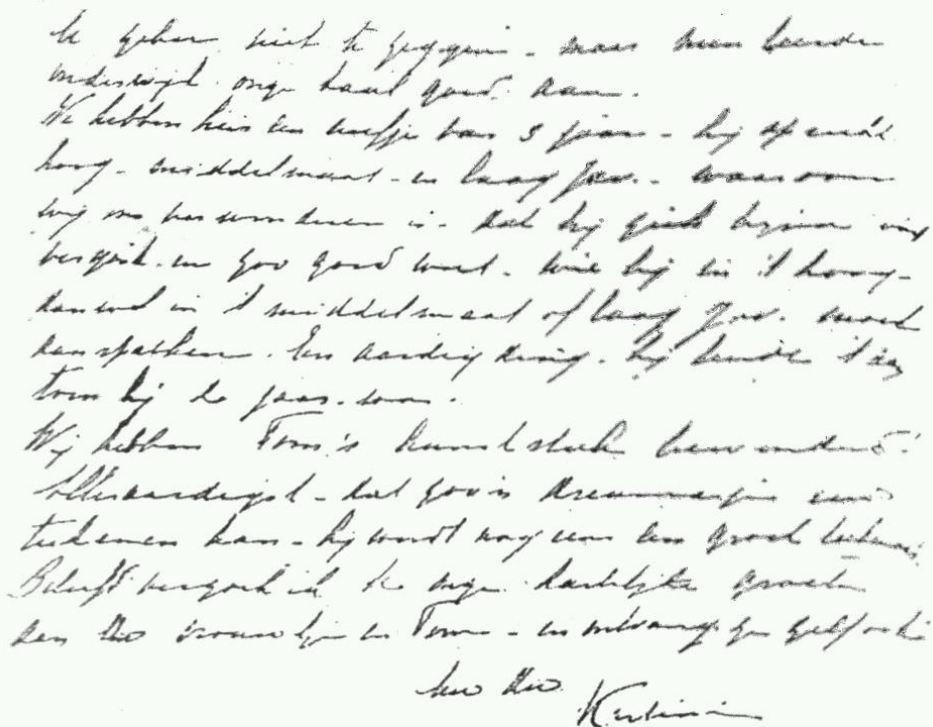 te geven niet te zeggen - maar men leerde
onderwijl onze taal goed aan.
We hebben hier een neefje van 3 jaar - hij spreekt
hoog - middelmaat - en laag Jav. - waarom
wij ons verwonderen is - dat hij zich bijna nooit
vergist - en zoo goed weet - wie hij in 't hoog -
dan wel in 't middelmaat of laag Jav. moet
aanspreken. Een aardig ding - hij kende 't al
toen hij 2 jaar - was.
Wij hebben Tom's kunststuk bewonderd.
Alleraardigst - dat zoo'n dreumesje
teekenen kan - hij wordt nog eens een groot
vergeet de onze hartelijke groeten
aan Uw vrouwtje en Tom - en ontvang ze zelf ook
Uw
Kartini